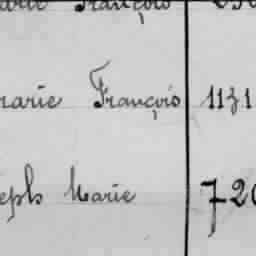 arie François
marie François 1131
seph Marie 720